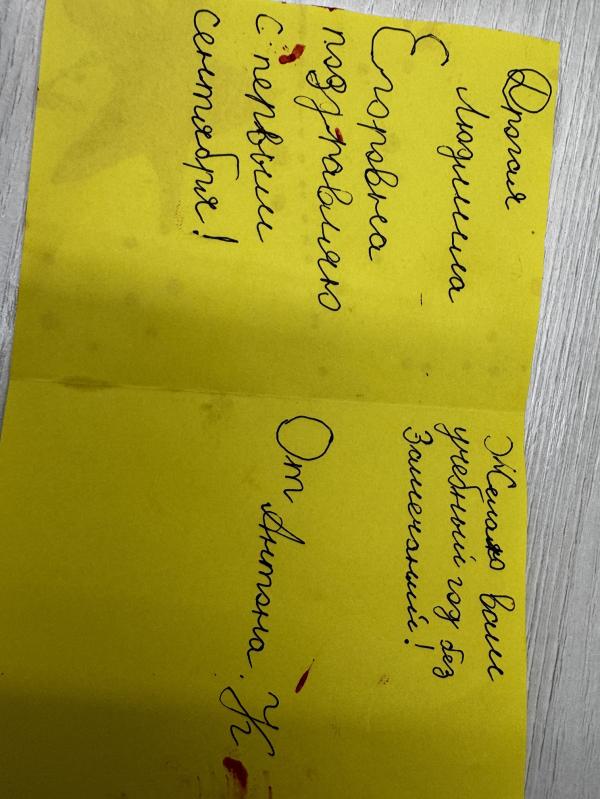 Дрогая
Людмила
Егоровна
поздравляю
с первым
сентября!
Желаю вам
учебный год без
Замечаний!
От Антона. К